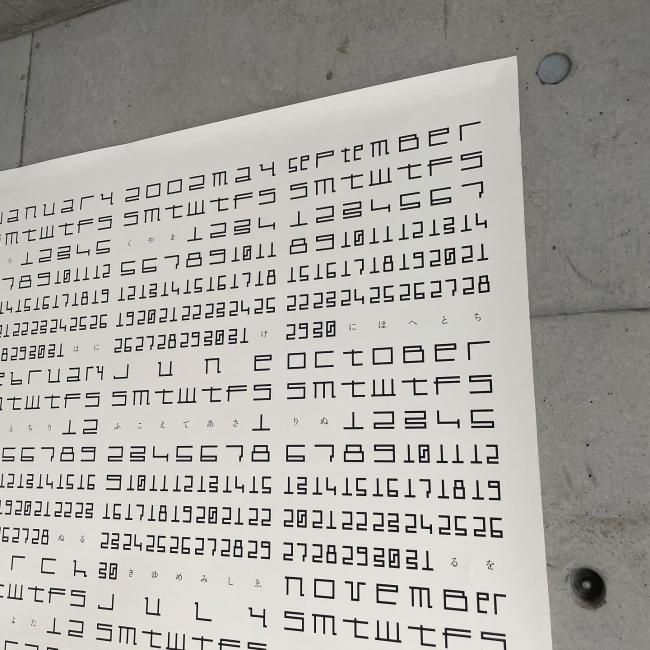 anuary 2002 may september
mtwtfs smtwtfs smtwtfs
ろ 1 2 3 4 5 く や ま 1 2 3 4 1 2 3 4 5 6 7
7 8 9 10 11 12 5 6 7 8 9 10 11 8 9 10 11 12 13 14
14 15 16 17 18 19 12 13 14 15 16 17 18 15 16 17 18 19 20 21
21 22 23 24 25 26 19 20 21 22 23 24 25 22 23 24 25 26 27 28
28 29 30 31 は に 26 27 28 29 30 31 け 29 30 に ほ へ と ち
ebruary June october
twtfs smtwtfs smtwtfs
と ち り 1 2 ふ こ え て あ さ 1 り ぬ 1 2 3 4 5
5 6 7 8 9 2 3 4 5 6 7 8 6 7 8 9 10 11 12
12 13 14 15 16 9 10 11 12 13 14 15 13 14 15 16 17 18 19
19 20 21 22 23 16 17 18 19 20 21 22 20 21 22 23 24 25 26
26 27 28 ぬ る 23 24 25 26 27 28 29 27 28 29 30 31 る を
rch 30 き ゆ め み し ゑ november
twtfs July smtwtfs
よ た 1 2 smtwtfs